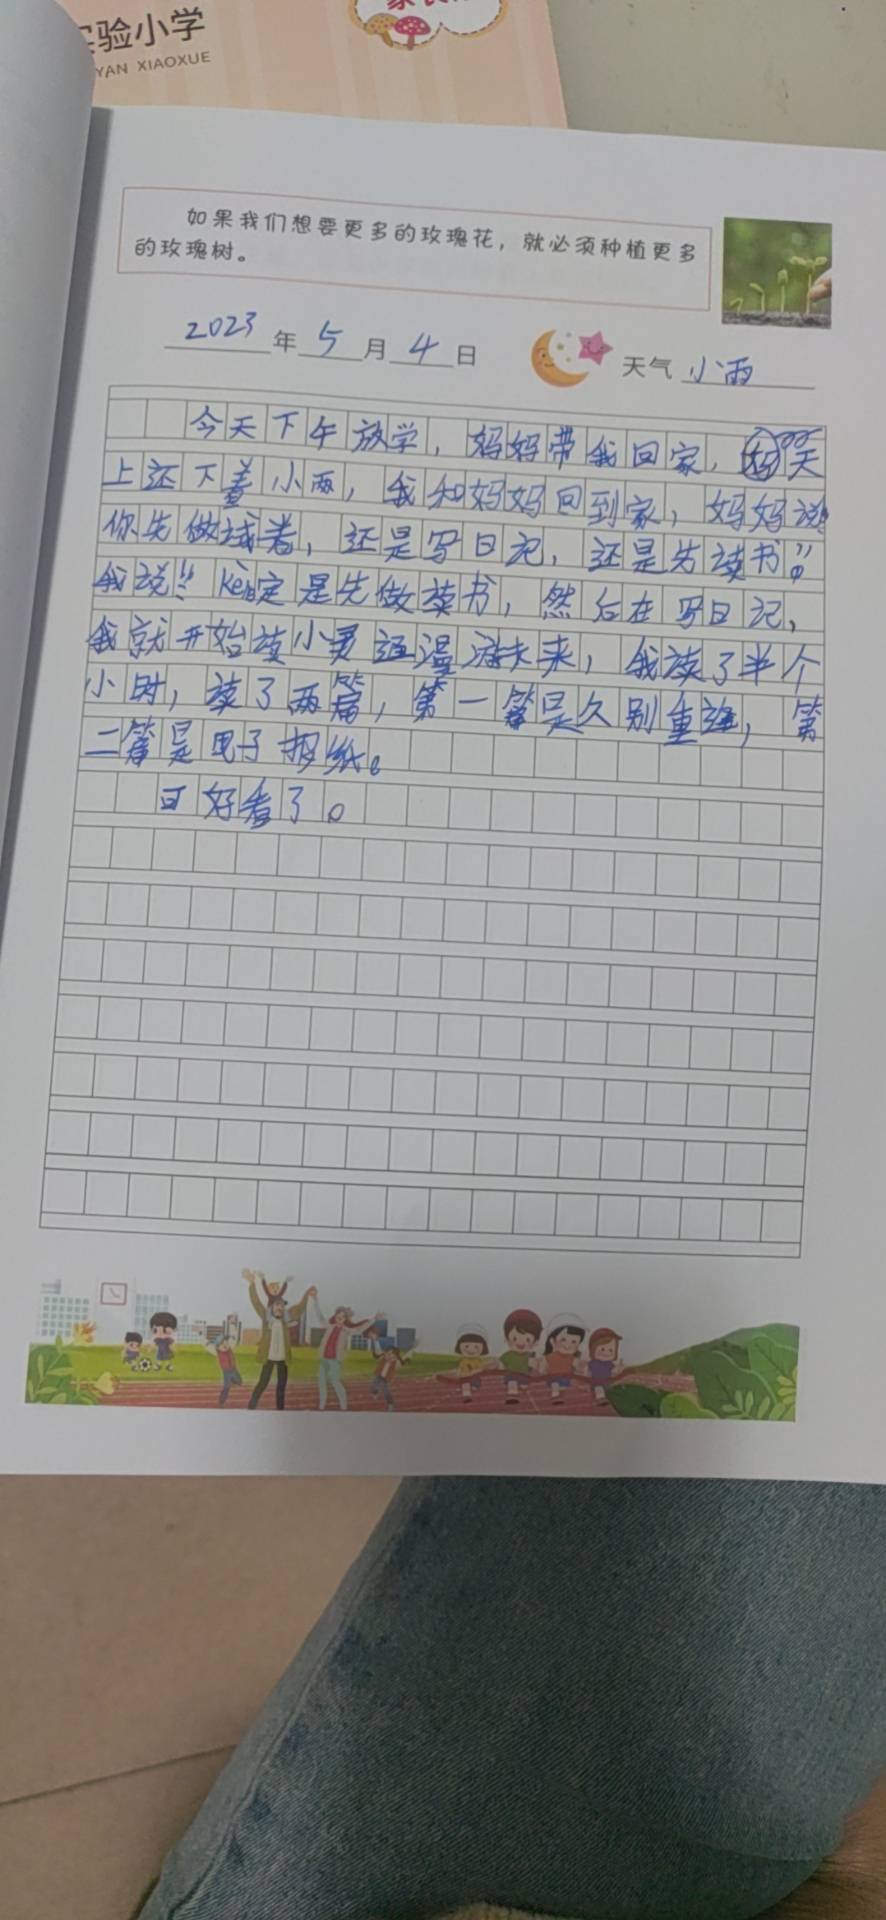 验小学
YAN XIAOXUE
如果我们想要更多的玫瑰花，就必须种植更多
的玫瑰树。
2023年5月4日
天气 小雨
今天下午放学，妈妈带我回家，天
上还下着小雨，我和妈妈回到家，妈妈说
你先做试卷，还是写日记，还是先读书”
我说：“kěn定是先做读书，然后在写日记，
我就开始读小灵通漫游未来，我读了半个
小时，读了两篇，第一篇是久别重逢，第
二篇是电子报纸。
可好看了。